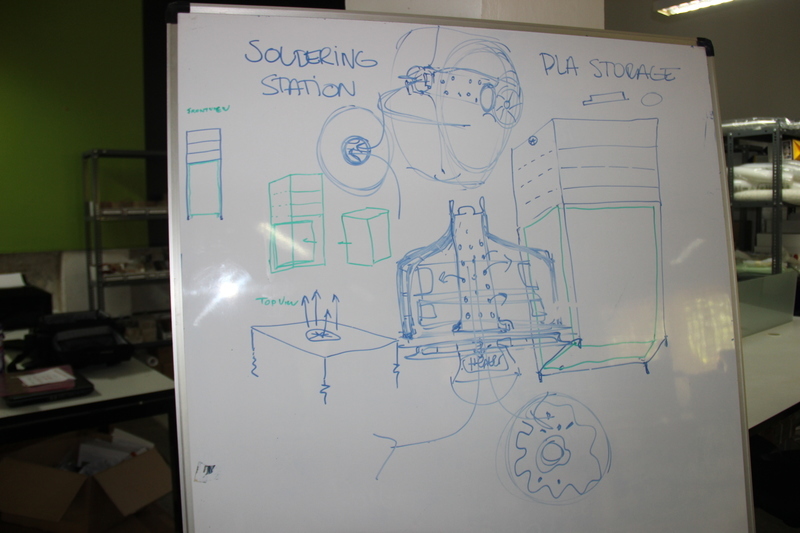 SOLDERING
STATION
PLA STORAGE
TOP VIEW
HEATER